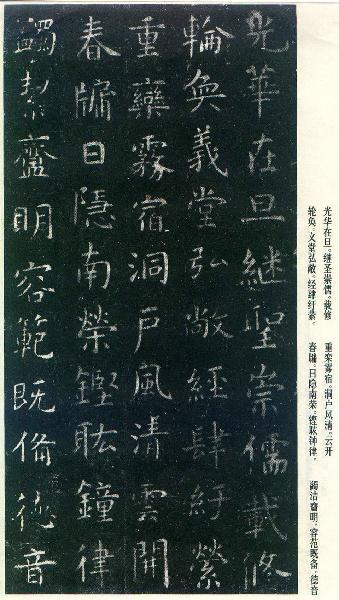 光華在旦繼聖崇儒載修
輪奐義堂弘敞經肆紆縈
重欒霧宿洞戶風清雲開
春牖日隱南榮鏗耾鐘律
蠲絜齍明容範既俻德音
光华在旦。继圣崇儒。载修
轮奂。义堂弘敞。经肆纡萦。
重栾雾宿。洞户风清。云开
春牖。日隐南荣。铿耾钟律。
蠲洁齍明。容范既备。德音